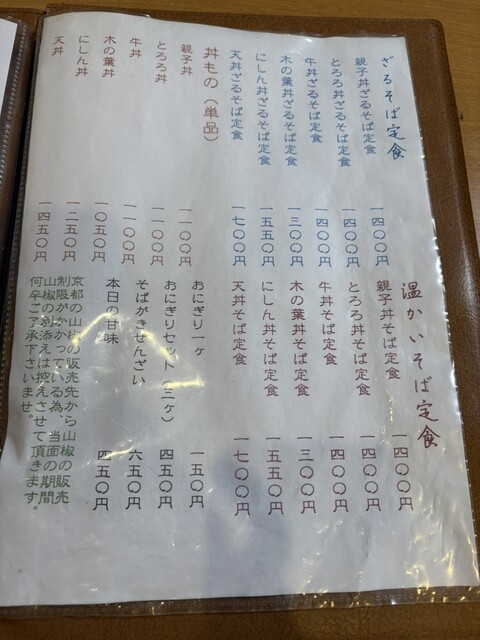 ざるそば定食
親子丼ざるそば定食 一四〇〇円
とろろ丼ざるそば定食 一四〇〇円
牛丼ざるそば定食 一四〇〇円
木の葉丼ざるそば定食 一三〇〇円
にしん丼ざるそば定食 一五五〇円
天丼ざるそば定食 一七〇〇円
丼もの（単品）
親子丼 一一〇〇円
とろろ丼 一一〇〇円
牛丼 一一〇〇円
木の葉丼 一〇五〇円
にしん丼 一二五〇円
天丼 一四五〇円
温かいそば定食
親子丼そば定食 一四〇〇円
とろろ丼そば定食 一四〇〇円
牛丼そば定食 一四〇〇円
木の葉丼そば定食 一三〇〇円
にしん丼そば定食 一五五〇円
天丼そば定食 一七〇〇円
おにぎり一ヶ 一五〇円
おにぎりセット（三ヶ） 四五〇円
そばがきせんざい 六五〇円
本日の甘味 四五〇円
京都の山椒の販売先から山椒の販売
制限がかかっている為、当面の期間
山椒の別添えは控えさせて頂きます。
何卒ご了承下さいませ。